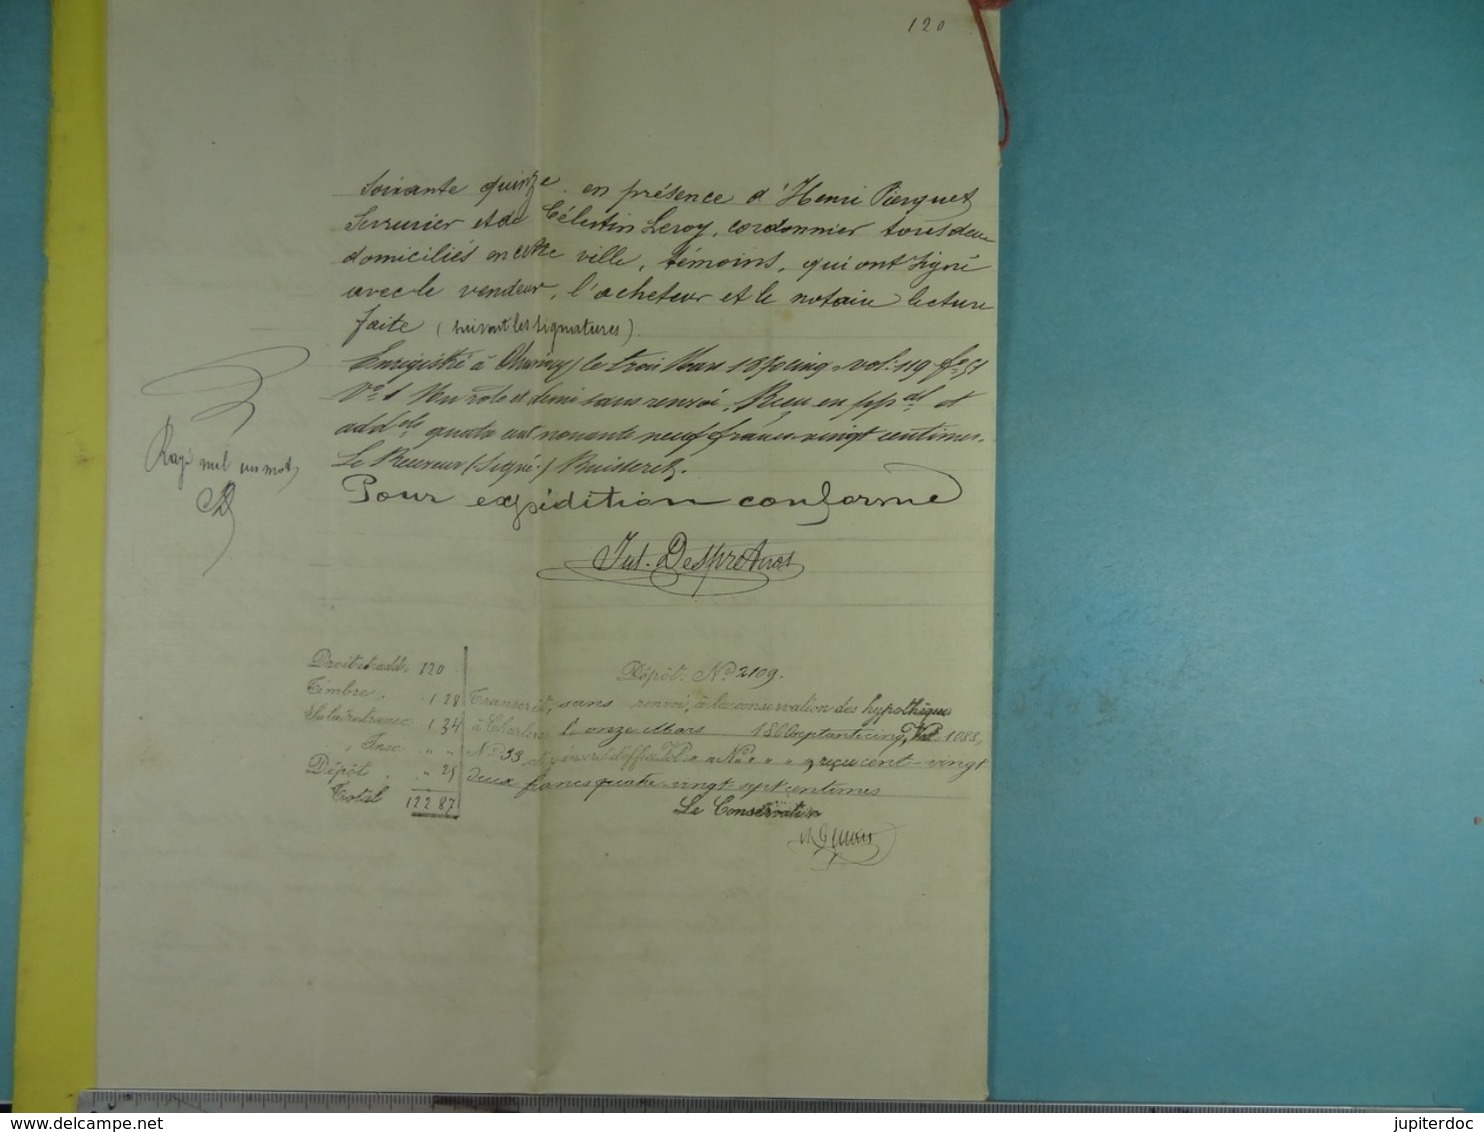 120
Soixante quinze en présence d'Henri Pierquet
Serrurier et de Célestin Leroy, cordonnier tous deux
domiciliés en cette ville, témoins, qui ont signé
avec le vendeur, l'acheteur et le notaire lecture
faite (suivent les signatures).
Enregistré à le trois Mars 18 cinq vol. 119 f° 51
V° 1 Un rôle et demi sans renvoi, Reçu en ppal et
addels quatre cent nonante neuf francs vingt centimes.
Le Receveur (Signé.) Buisseret.
Rayé nul un mot,
Pour expédition conforme
Jul. Desprethes
Dépôt: N° 2109.
Droit et add. 120
Timbre, 1 28
Salaire transc 1 34
" Insc " "
Dépôt " 25
Total 122 87
Transcrit, sans renvoi, à la conservation des hypothèques
à Charleroi l'onze Mars 1800septante cinq, Vol. 1088,
N° 33 et inscrit d'office Vol " " N° " " " reçu cent-vingt
deux francs quatre-vingt sept centimes
Le Conservateur
delcampe.net
jupiterdoc